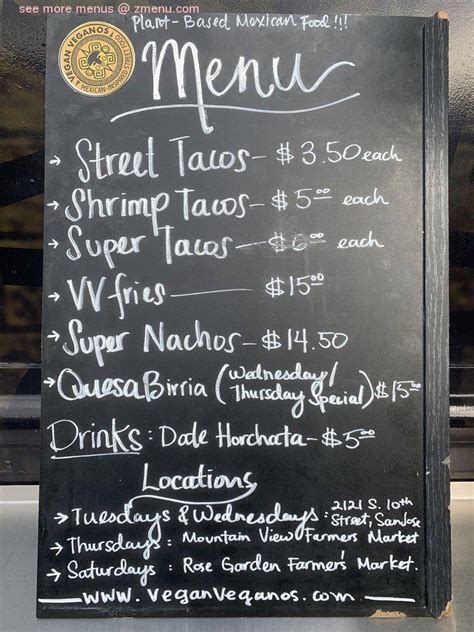 see more menus @ zmenu.com
Plant-Based Mexican Food!!!
VEGAN VEGANOS
MEXICAN-INSPIRED STREET FOOD
Menu
→ Street Tacos - $3.50 each
→ Shrimp Tacos - $5.00 each
→ Super Tacos - $6.00 each
→ VV fries — $15.00
→ Super Nachos - $14.50
→ QuesaBirria (Wednesday/
Thursday Special) $15.00
Drinks: Date Horchata - $5.00
Locations
→ Tuesdays & Wednesdays: 2121 S. 10th
Street, San Jose
→ Thursdays: Mountain View Farmers Market
→ Saturdays: Rose Garden Farmer's Market.
www.VeganVeganos.com